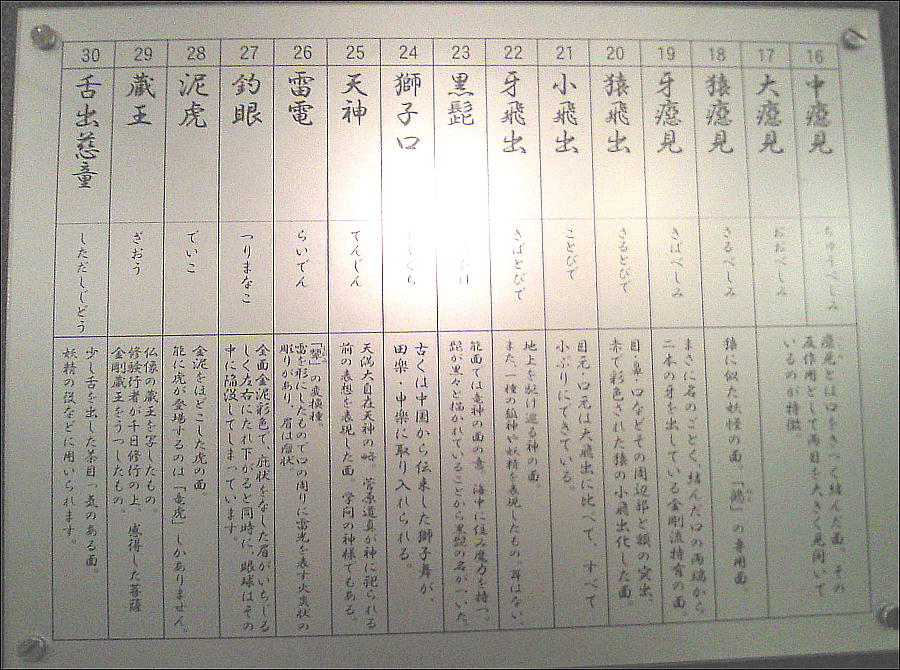 16
中癋見
ちゅうべしみ
癋見とは口をきつく結んだ面。その
反作用として両目を大きく見開いて
いるのが特徴。
17
大癋見
おおべしみ
18
猿癋見
さるべしみ
猿に似た妖怪の面。「鵺」の専用面。
19
牙癋見
きばべしみ
まさに名のごとく、結んだ口の両端から
二本の牙を出している金剛流特有の面。
20
猿飛出
さるとびで
目・鼻・口などその周辺部と額の突出、
赤で彩色された猿の小飛出化した面。
21
小飛出
ことびで
目元・口元は大飛出に比べて、すべて
小ぶりにできている。
22
牙飛出
きばとびで
地上を駆け巡る神の面。
また、一種の狐神や妖精を表現したもの。耳はない。
23
黒髭
能面では竜神の面の意。海中に住み魔力を持つ。
髭が黒々と描かれていることから黒髭の名がついた。
24
獅子口
ししぐち
古くは中国から伝来した獅子舞が、
田楽・申楽に取り入れられる。
25
天神
てんじん
天満大自在天神の略。菅原道真が神に祀られる
前の表想を表現した面。学問の神様でもある。
26
雷電
らいでん
「顰」の変換種。
雷を形にしたもので口の周りに雷光を表す火炎状の
彫りがあり、眉は瘤状。
27
釣眼
つりまなこ
全面金泥彩色で、庇状をなした眉がいちじる
しく左右にたれ下がると同時に、眼球はその
中に陥没してしまっています。
28
泥虎
でいこ
金泥をほどこした虎の面。
能に虎が登場するのは「竜虎」しかありません。
29
蔵王
ざおう
仏像の蔵王を写したもの。
修験行者が千日修行の上、感得した菩薩
金剛蔵王をうつしたもの。
30
舌出慈童
しただしじどう
少し舌を出した茶目っ気のある面。
妖精の役などに用いられます。